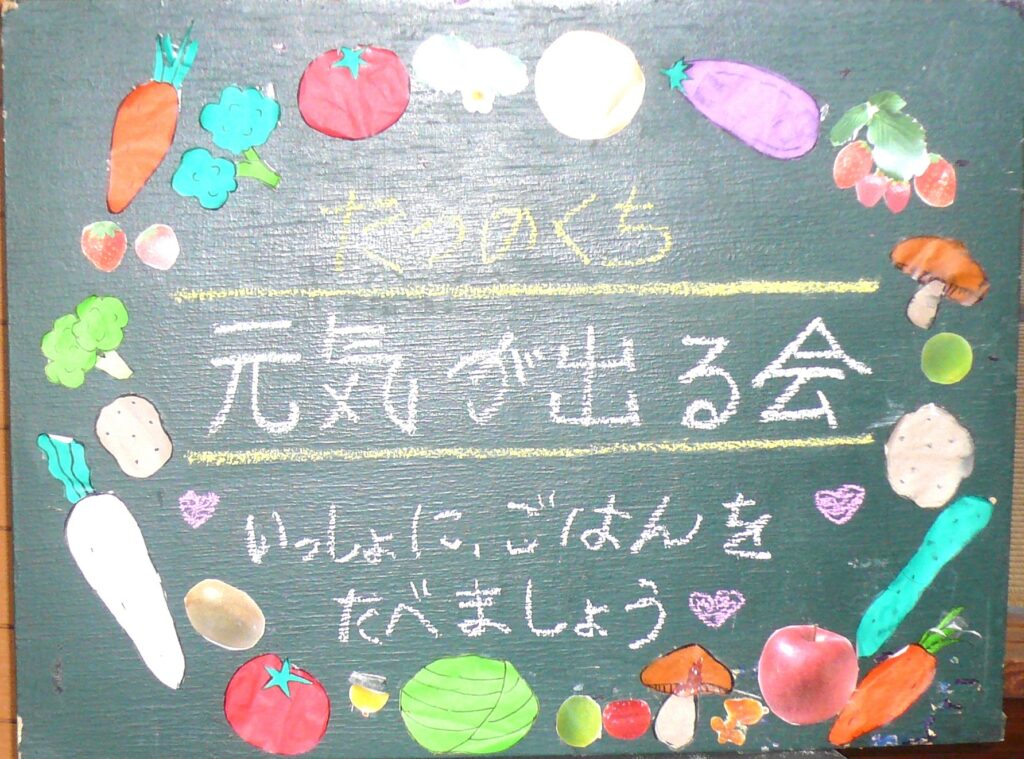 たつのくち
元気が出る会
いっしょに、ごはんを
たべましょう